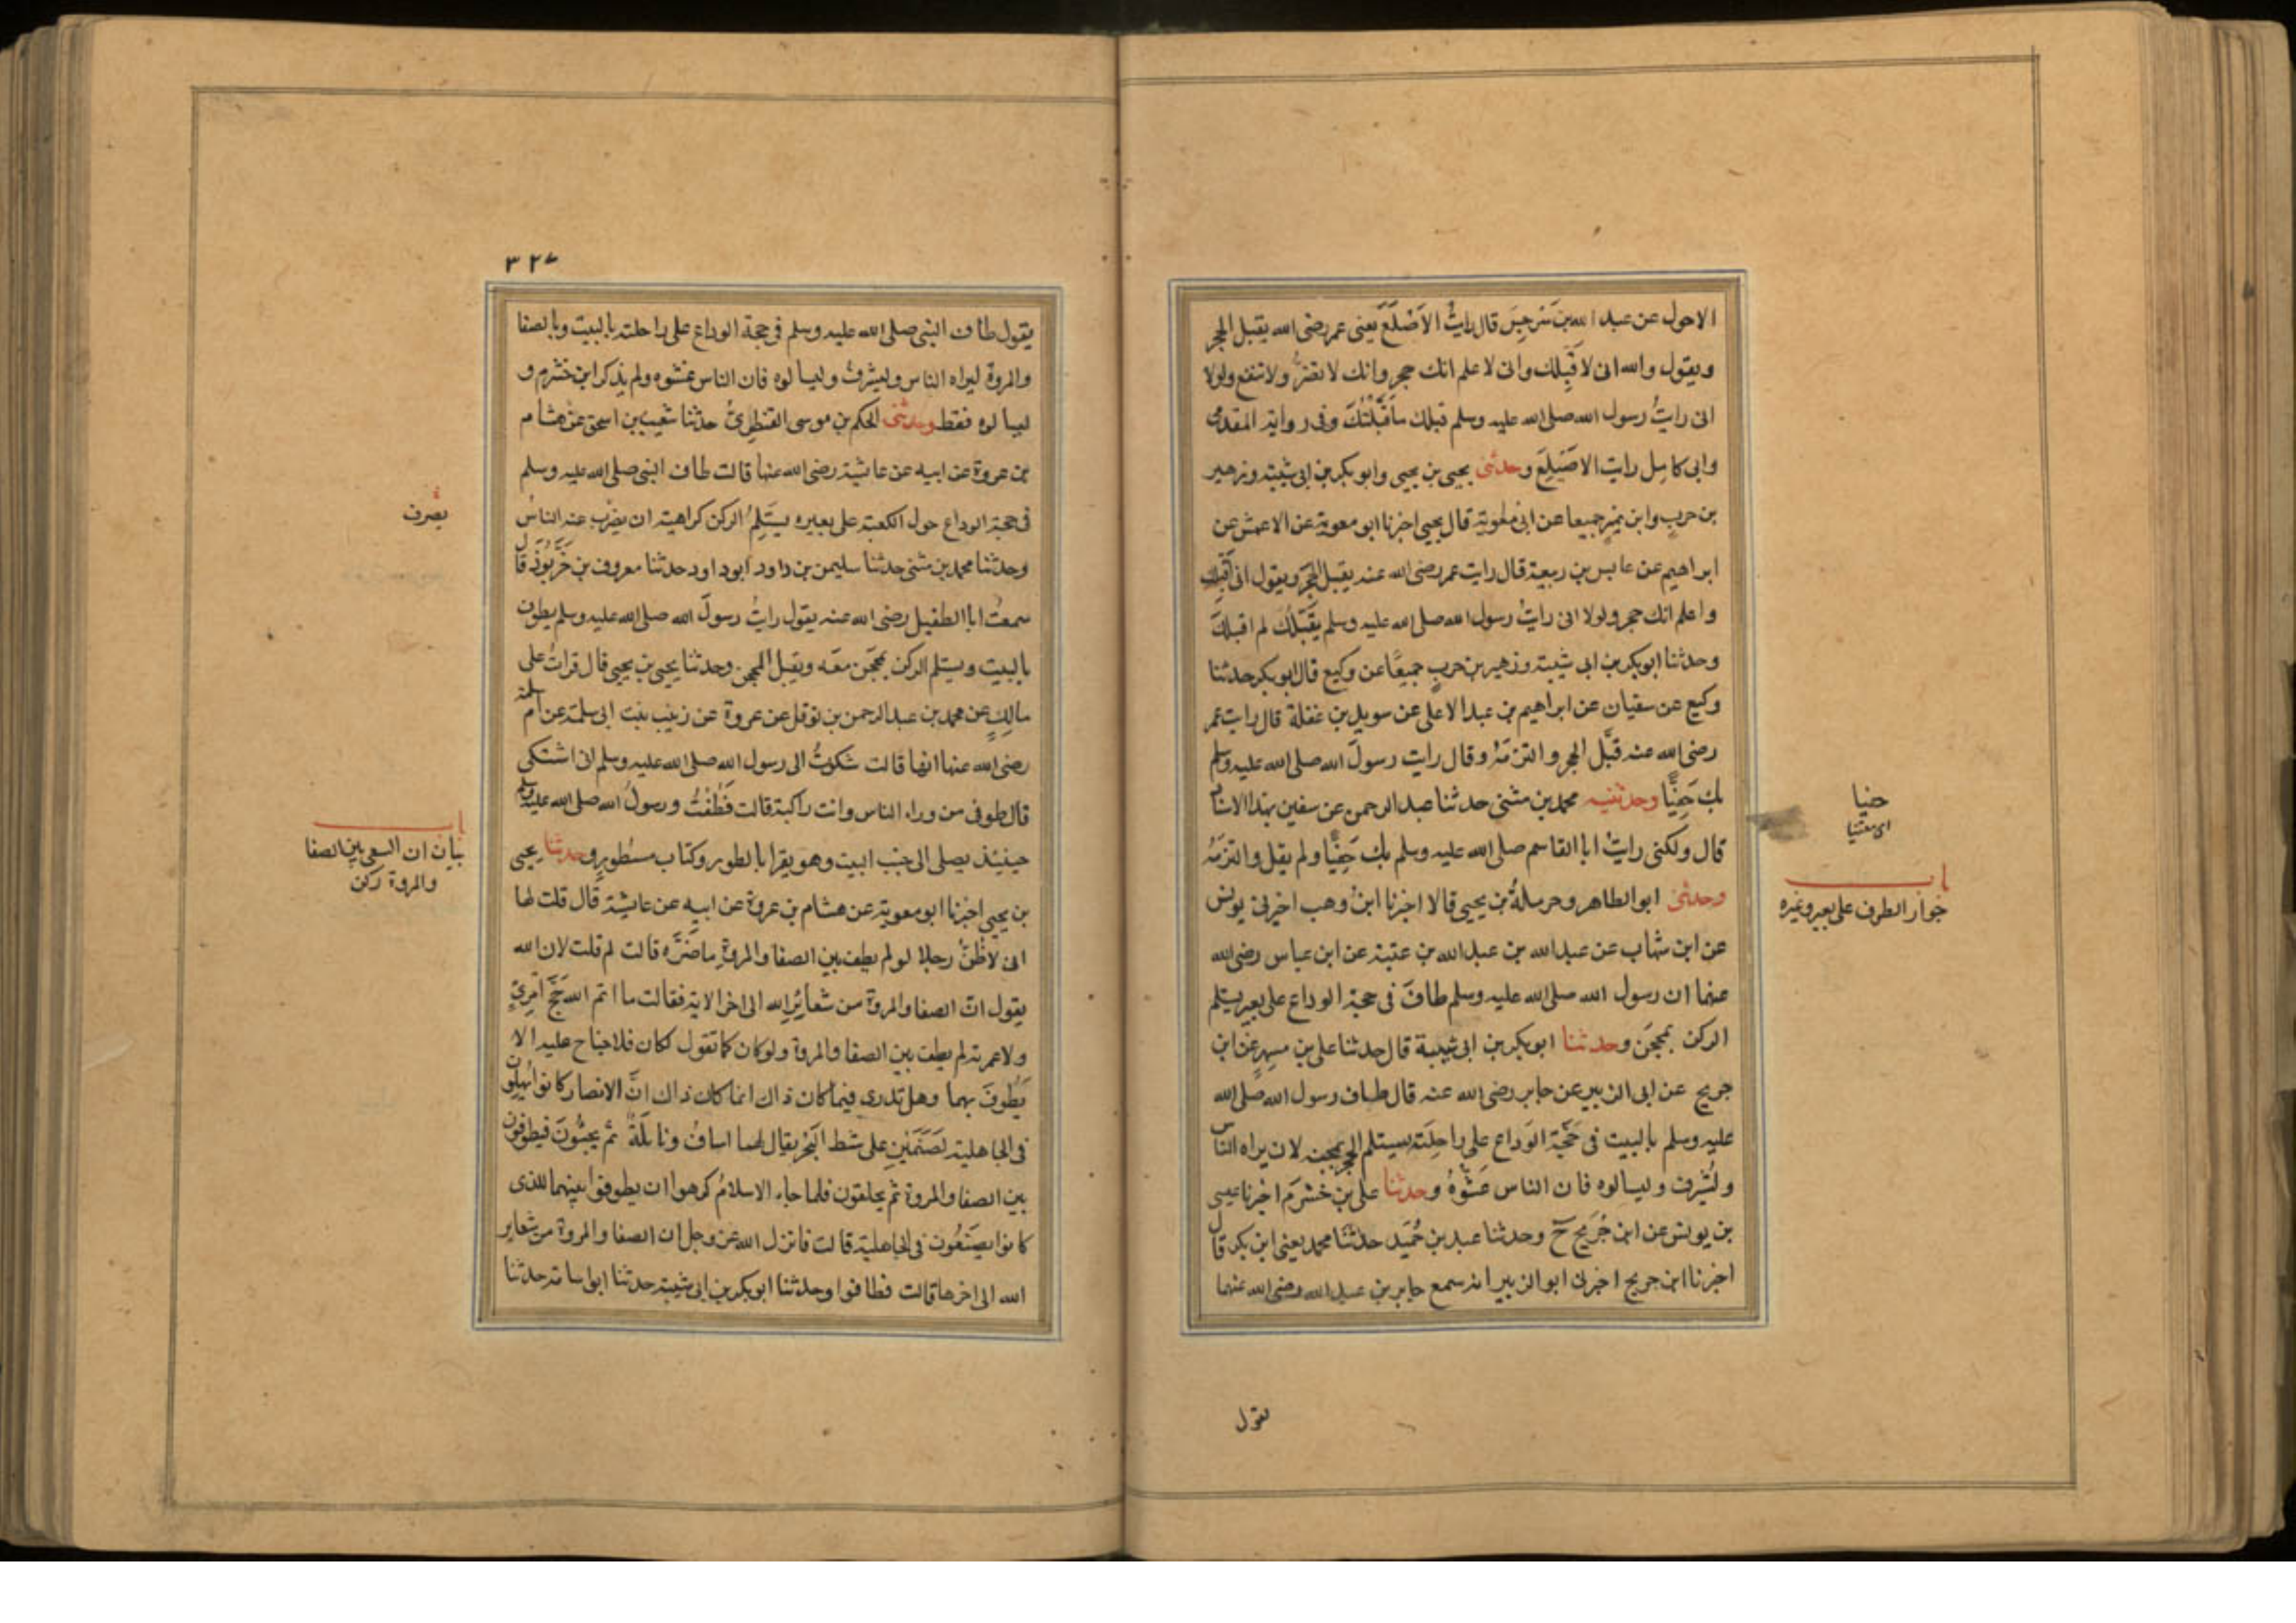 الاحول عن عبد الله بن سَرجِسَ قال رايتُ الاَصْلَعَ يعنى عمر رضى الله يقبل الحجر
ويقول والله انى لاقَبِلك وانى لاعلم انك حجر وانك لا تضرُّ ولا تنفع ولولا
انى رايتُ رسول الله صلى الله عليه وسلم قبلك ما قَبَّلْتُكَ وفى رواية المقدمى
وابى كامِل رايت الاصَيْلِعَ وحدثنى يحيى بن يحيى وابو بكر بن ابى شيبة وزهير
بن حربٍ وابن نميرٍ جميعا عن ابى معوية قال يحيى اخبرنا ابو معوية عن الاعمش عن
ابراهيم عن عابس بن ربيعة قال رايت عمر رضى الله عنه يقبل الحجرَ ويقول انى اُقبلك
واعلم انك حجر ولولا انى رايتُ رسول الله صلى الله عليه وسلم يقَبّلُكَ لم اقبلكَ
وحدثنا ابو بكر بن ابى شيبة وزهير بن حربٍ جميعًا عن وكيع قال ابو بكر حدثنا
وكيع عن سفيان عن ابراهيم بن عبد الاعلى عن سويد بن غفلة قال رايت عمر
رضى الله عنه قبَّل الحجر والتزمَهُ وقال رايت رسولَ الله صلى الله عليه وسلم
بك حَفِيًّا وحدثنيه محمد بن مثنى حدثنا عبد الرحمن عن سفين بهذا الاسناد
قال ولكنى رايتُ ابا القاسم صلى الله عليه وسلم بك حَفِيًّا ولم يقل والتزمَهُ
وحدثنى ابو الطاهر وحرملةُ بن يحيى قالا اخبرنا ابنُ وهب اخبرنى يونس
عن ابن شهاب عن عبد الله بن عبد الله بن عتبة عن ابن عباس رضى الله
عنهما ان رسول الله صلى الله عليه وسلم طافَ فى حجة الوداع على بعيرٍ يستلم
الركن بمحجَن وحدثنا ابو بكر بن ابى شيبة قال حدثنا على بن مسهرٍ عن ابن
جريج عن ابى الزبير عن جابر رضى الله عنه قال طاف رسول الله صلى الله
عليه وسلم بالبيت فى حَجَّة الوَداع على راحِلَته يستلم الحجر بمحجنه لان يراه الناس
وليُشرِف وليسالوه فان الناس غَشَوْهُ وحدثنا على بن خشرَم اخبرنا عيسى
بن يونس عن ابن جُرَيج ح وحدثنا عبد بن حُمَيد حدثنا محمد يعنى ابن بكر قال
اخبرنا ابن جريج اخبرنى ابو الزبير انه سمع جابر بن عبد الله رضى الله عنهما
يقول
حفيا
اى معتنيا
باب
جواز الطوف على بعير وغيره
٣٢٧
يقول طاف النبى صلى الله عليه وسلم فى حجة الوداع على راحلته بالبيت وبالصفا
والمروة ليراه الناس وليشرفُ وليسالوه فان الناس غشوه ولم يذكر ابن خشرم و
ليسالوه فقط وحدثنى الحكم بن موسى القنطرىُّ حدثنا شعيب بن اسحق عن هشام
بن عروة عن ابيه عن عايشة رضى الله عنها قالت طاف النبى صلى الله عليه وسلم
فى حجة الوداع حول الكعبة على بعيره يستَلِمُ الركن كراهية ان يضرَب عنه الناسُ
وحدثنا محمد بن مثنى حدثنا سليمن بن داود ابو داود حدثنا معروف بن خَرَّبُوذَ قال
سمعتُ ابا الطفيل رضى الله عنه يقول رايتُ رسولَ الله صلى الله عليه وسلم يطوف
بالبيت ويستلم الركن بمحجَن معَه ويقبل المحجن وحدثنا يحيى بن يحيى قال قراتُ على
مالِكٍ عن محمد بن عبد الرحمن بن نوفل عن عروة عن زينب بنت ابى سلمة عن ام سلمة
رضى الله عنها انها قالت شكوتُ الى رسول الله صلى الله عليه وسلم انى اشتكى
قال طوفى من وراء الناس وانت راكبة قالت فَطُفْتُ ورسولُ الله صلى الله عليه وسلم
حينئذ يصلى الى جنب البيت وهو يقرا بالطور وكتاب مسطور وحدثنا يحيى
بن يحيى اخبرنا ابو معوية عن هشام بن عروة عن ابيه عن عايشة قال قلت لها
انى لاظُنُّ رجلا لو لم يطف بين الصفا والمروةِ ما ضَرَّه قالت لم قلت لان الله
يقول انّ الصفا والمروة من شعائرِ الله الى اخر الاية فقالت ما اتم الله حَجّ امرِئٍ
ولا عمرته لم يطف بين الصفا والمروة ولو كان كما تقول لكان فلا جناح عليه الا
يَطَّوفَ بهما وهل تدرى فيما كان ذاك انما كان ذاك انّ الانصار كانوا يُهلون
فى الجاهلية لصَنَمَيْنِ على شط البَحر يقال لهما اسافُ ونائلةُ ثم يجيئونَ فيطوفون
بين الصفا والمروة ثم يحلقون فلما جاء الاسلامُ كرهوا ان يطوفوا بينهما للذى
كانوا يصنَعُون فى الجاهلية قالت فانزل الله عز وجل ان الصفا والمروة من شعاير
الله الى اخرها قالت فطافوا وحدثنا ابو بكر بن ابى شيبة حدثنا ابو اسامة حدثنا
يصرف
باب
بيان ان السعى بين الصفا
والمروة ركن